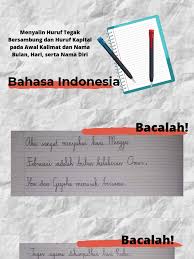 Menyalin Huruf Tegak
Bersambung dan Huruf Kapital
pada Awal Kalimat dan Nama
Bulan, Hari, serta Nama Diri
Bahasa Indonesia
Bacalah!
Aku sangat menyukai hari Minggu.
Februari adalah bulan kelahiran Omar.
dan menarik
Bacalah!